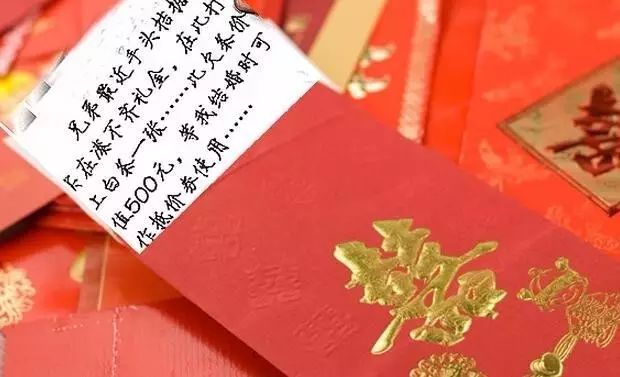 兄弟最近手头拮据
实在凑不齐礼金,在此打
上白条一张……此欠条价
值500元,等我结婚时可
作抵价券使用……
囍
囍